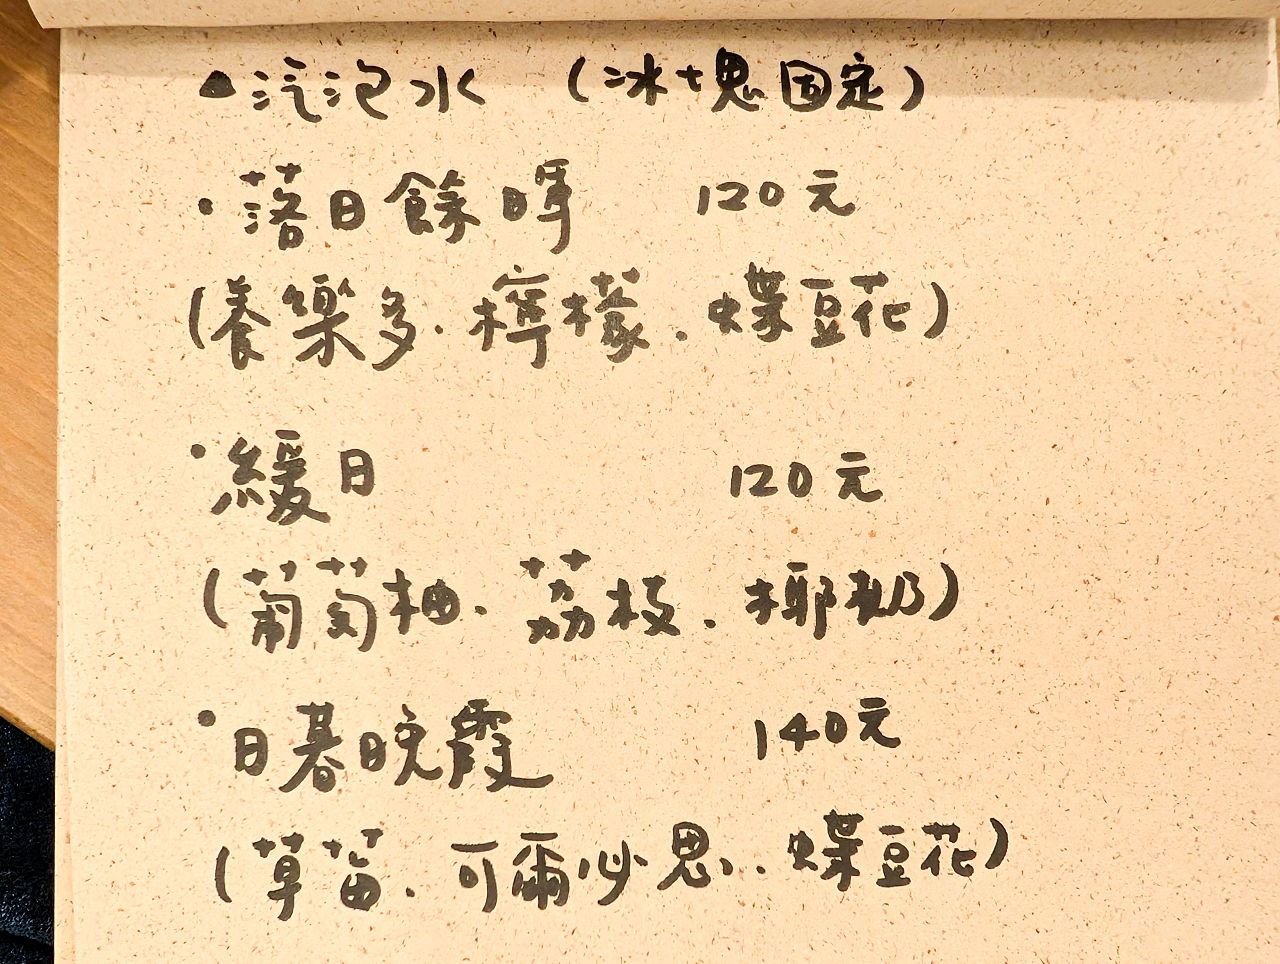 ▲汽泡水 (冰塊固定)
•落日餘暉 120元
(養樂多.檸檬.蝶豆花)
•緩日 120元
(葡萄柚.荔枝.椰奶)
•日暮晚霞 140元
(草莓.可爾必思.蝶豆花)